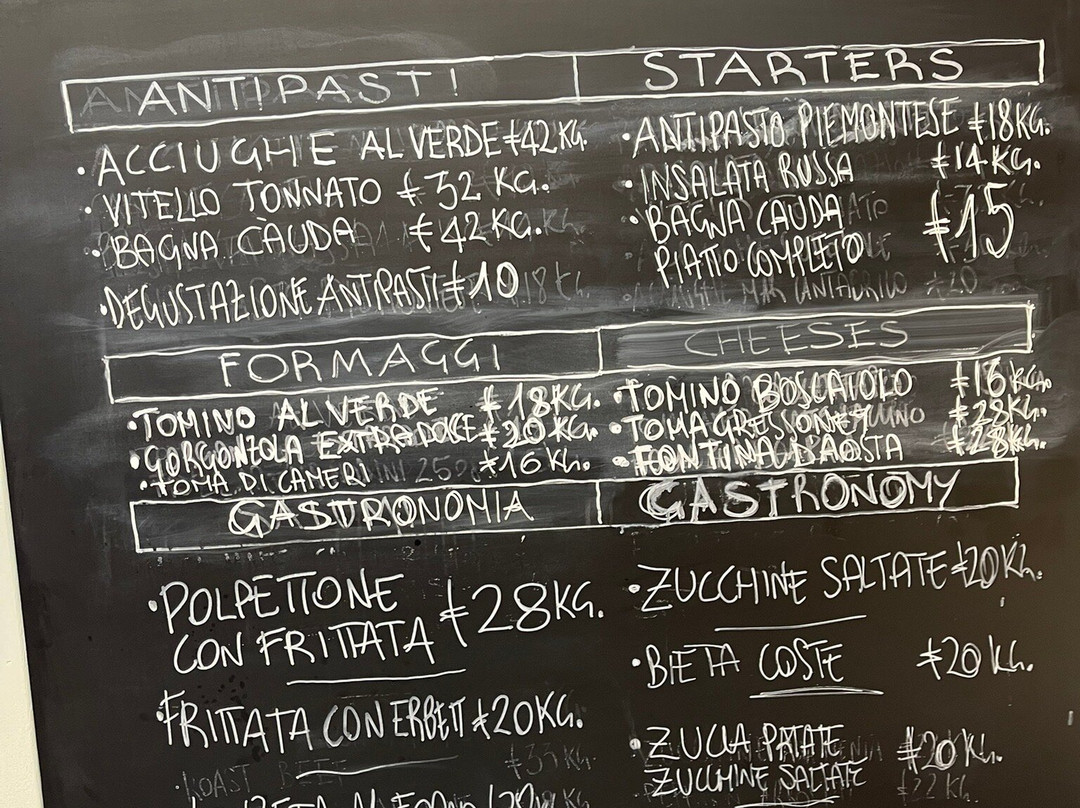 ANTIPASTI
STARTERS
• ACCIUGHE AL VERDE €42KG.
• VITELLO TONNATO €32 KG.
• BAGNA CÀUDA €42KG.
• DEGUSTAZIONE ANTIPASTI €10
• ANTIPASTO PIEMONTESE €18KG.
• INSALATA RUSSA €14KG.
• BAGNA CAUDA
PIATTO COMPLETO €15
FORMAGGI
CHEESES
• TOMINO AL VERDE €18KG.
• GORGONZOLA EXTRA DOLCE €20KG.
• TOMA DI CAMERI €16KG.
• TOMINO BOSCAIOLO €16KG.
• TOMA GRESSONEY €28KG.
• FONTINA D'AOSTA €28KG.
GASTRONOMIA
GASTRONOMY
• POLPETTONE
CON FRITTATA €28KG.
• FRITTATA CON ERBETT €20KG.
• ROAST BEEF €33KG.
• ZUCCHINE SALTATE €20KG.
• BIETA COSTE €20KG.
• ZUCCA PATATE €20KG.
ZUCCHINE SALTATE €22KG.